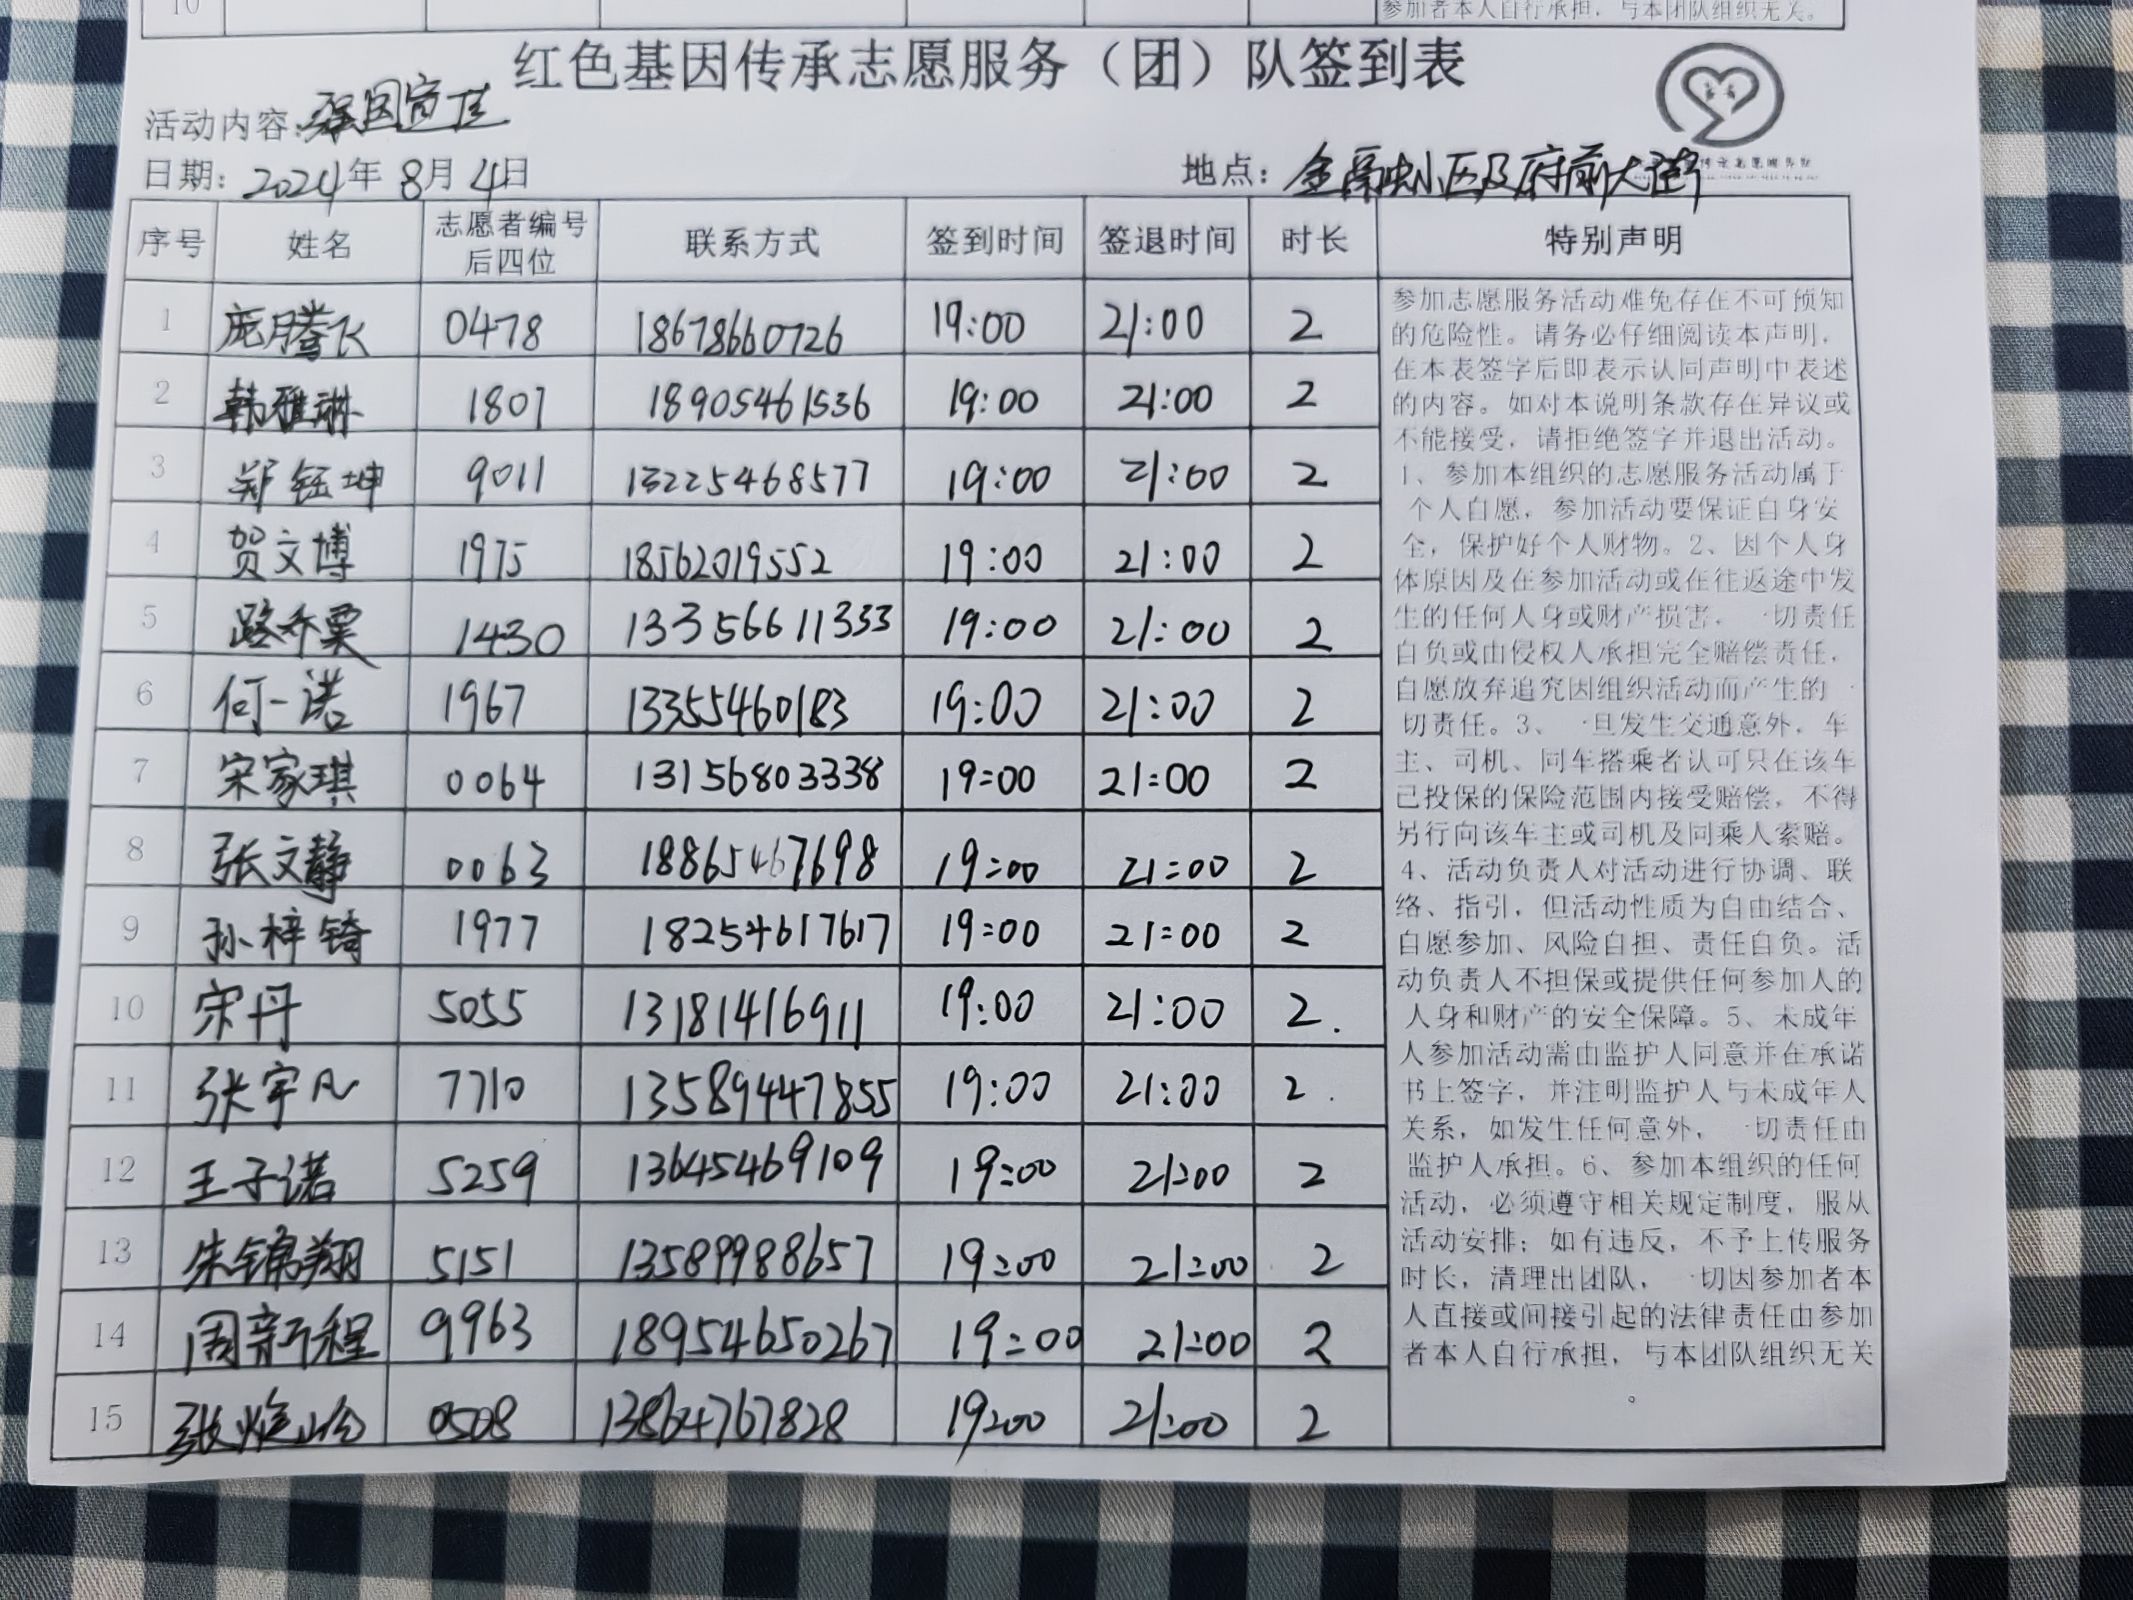 参加者本人自行承担，与本团队组织无关。
红色基因传承志愿服务（团）队签到表
活动内容:
日期: 2024年 8月 4日
地点: 小区及府前大街
序号 姓名 志愿者编号后四位 联系方式 签到时间 签退时间 时长 特别声明
1 庞腾飞 0478 18678660726 19:00 21:00 2
2 韩雅琳 1807 18905461536 19:00 21:00 2
3 郑钰坤 9011 13225468577 19:00 21:00 2
4 贺文博 1975 18562019552 19:00 21:00 2
5 路乔 1430 13356611333 19:00 21:00 2
6 何一诺 1967 13355460183 19:00 21:00 2
7 宋家琪 0064 13156803338 19:00 21:00 2
8 张文静 0063 18865467698 19:00 21:00 2
9 孙梓锜 1977 18254617617 19:00 21:00 2
10 宋丹 5055 13181416911 19:00 21:00 2.
11 张宇凡 7710 13589447855 19:00 21:00 2.
12 王子诺 5259 13645469109 19:00 21:00 2
13 朱锦翔 5151 13589988657 19:00 21:00 2
14 周新程 9963 18954650267 19:00 21:00 2
15 张 0508 13864767828 19:00 21:00 2
参加志愿服务活动难免存在不可预知
的危险性。请务必仔细阅读本声明，
在本表签字后即表示认同声明中表述
的内容。如对本说明条款存在异议或
不能接受，请拒绝签字并退出活动。
1、参加本组织的志愿服务活动属于
个人自愿，参加活动要保证自身安
全，保护好个人财物。2、因个人身
体原因及在参加活动或在往返途中发
生的任何人身或财产损害，一切责任
自负或由侵权人承担完全赔偿责任，
自愿放弃追究因组织活动而产生的一
切责任。3、一旦发生交通意外，车
主、司机、同车搭乘者认可只在该车
已投保的保险范围内接受赔偿，不得
另行向该车主或司机及同乘人索赔。
4、活动负责人对活动进行协调、联
络、指引，但活动性质为自由结合、
自愿参加、风险自担、责任自负。活
动负责人不担保或提供任何参加人的
人身和财产的安全保障。5、未成年
人参加活动需由监护人同意并在承诺
书上签字，并注明监护人与未成年人
关系，如发生任何意外，一切责任由
监护人承担。6、参加本组织的任何
活动，必须遵守相关规定制度，服从
活动安排；如有违反，不予上传服务
时长，清理出团队，一切因参加者本
人直接或间接引起的法律责任由参加
者本人自行承担，与本团队组织无关
。